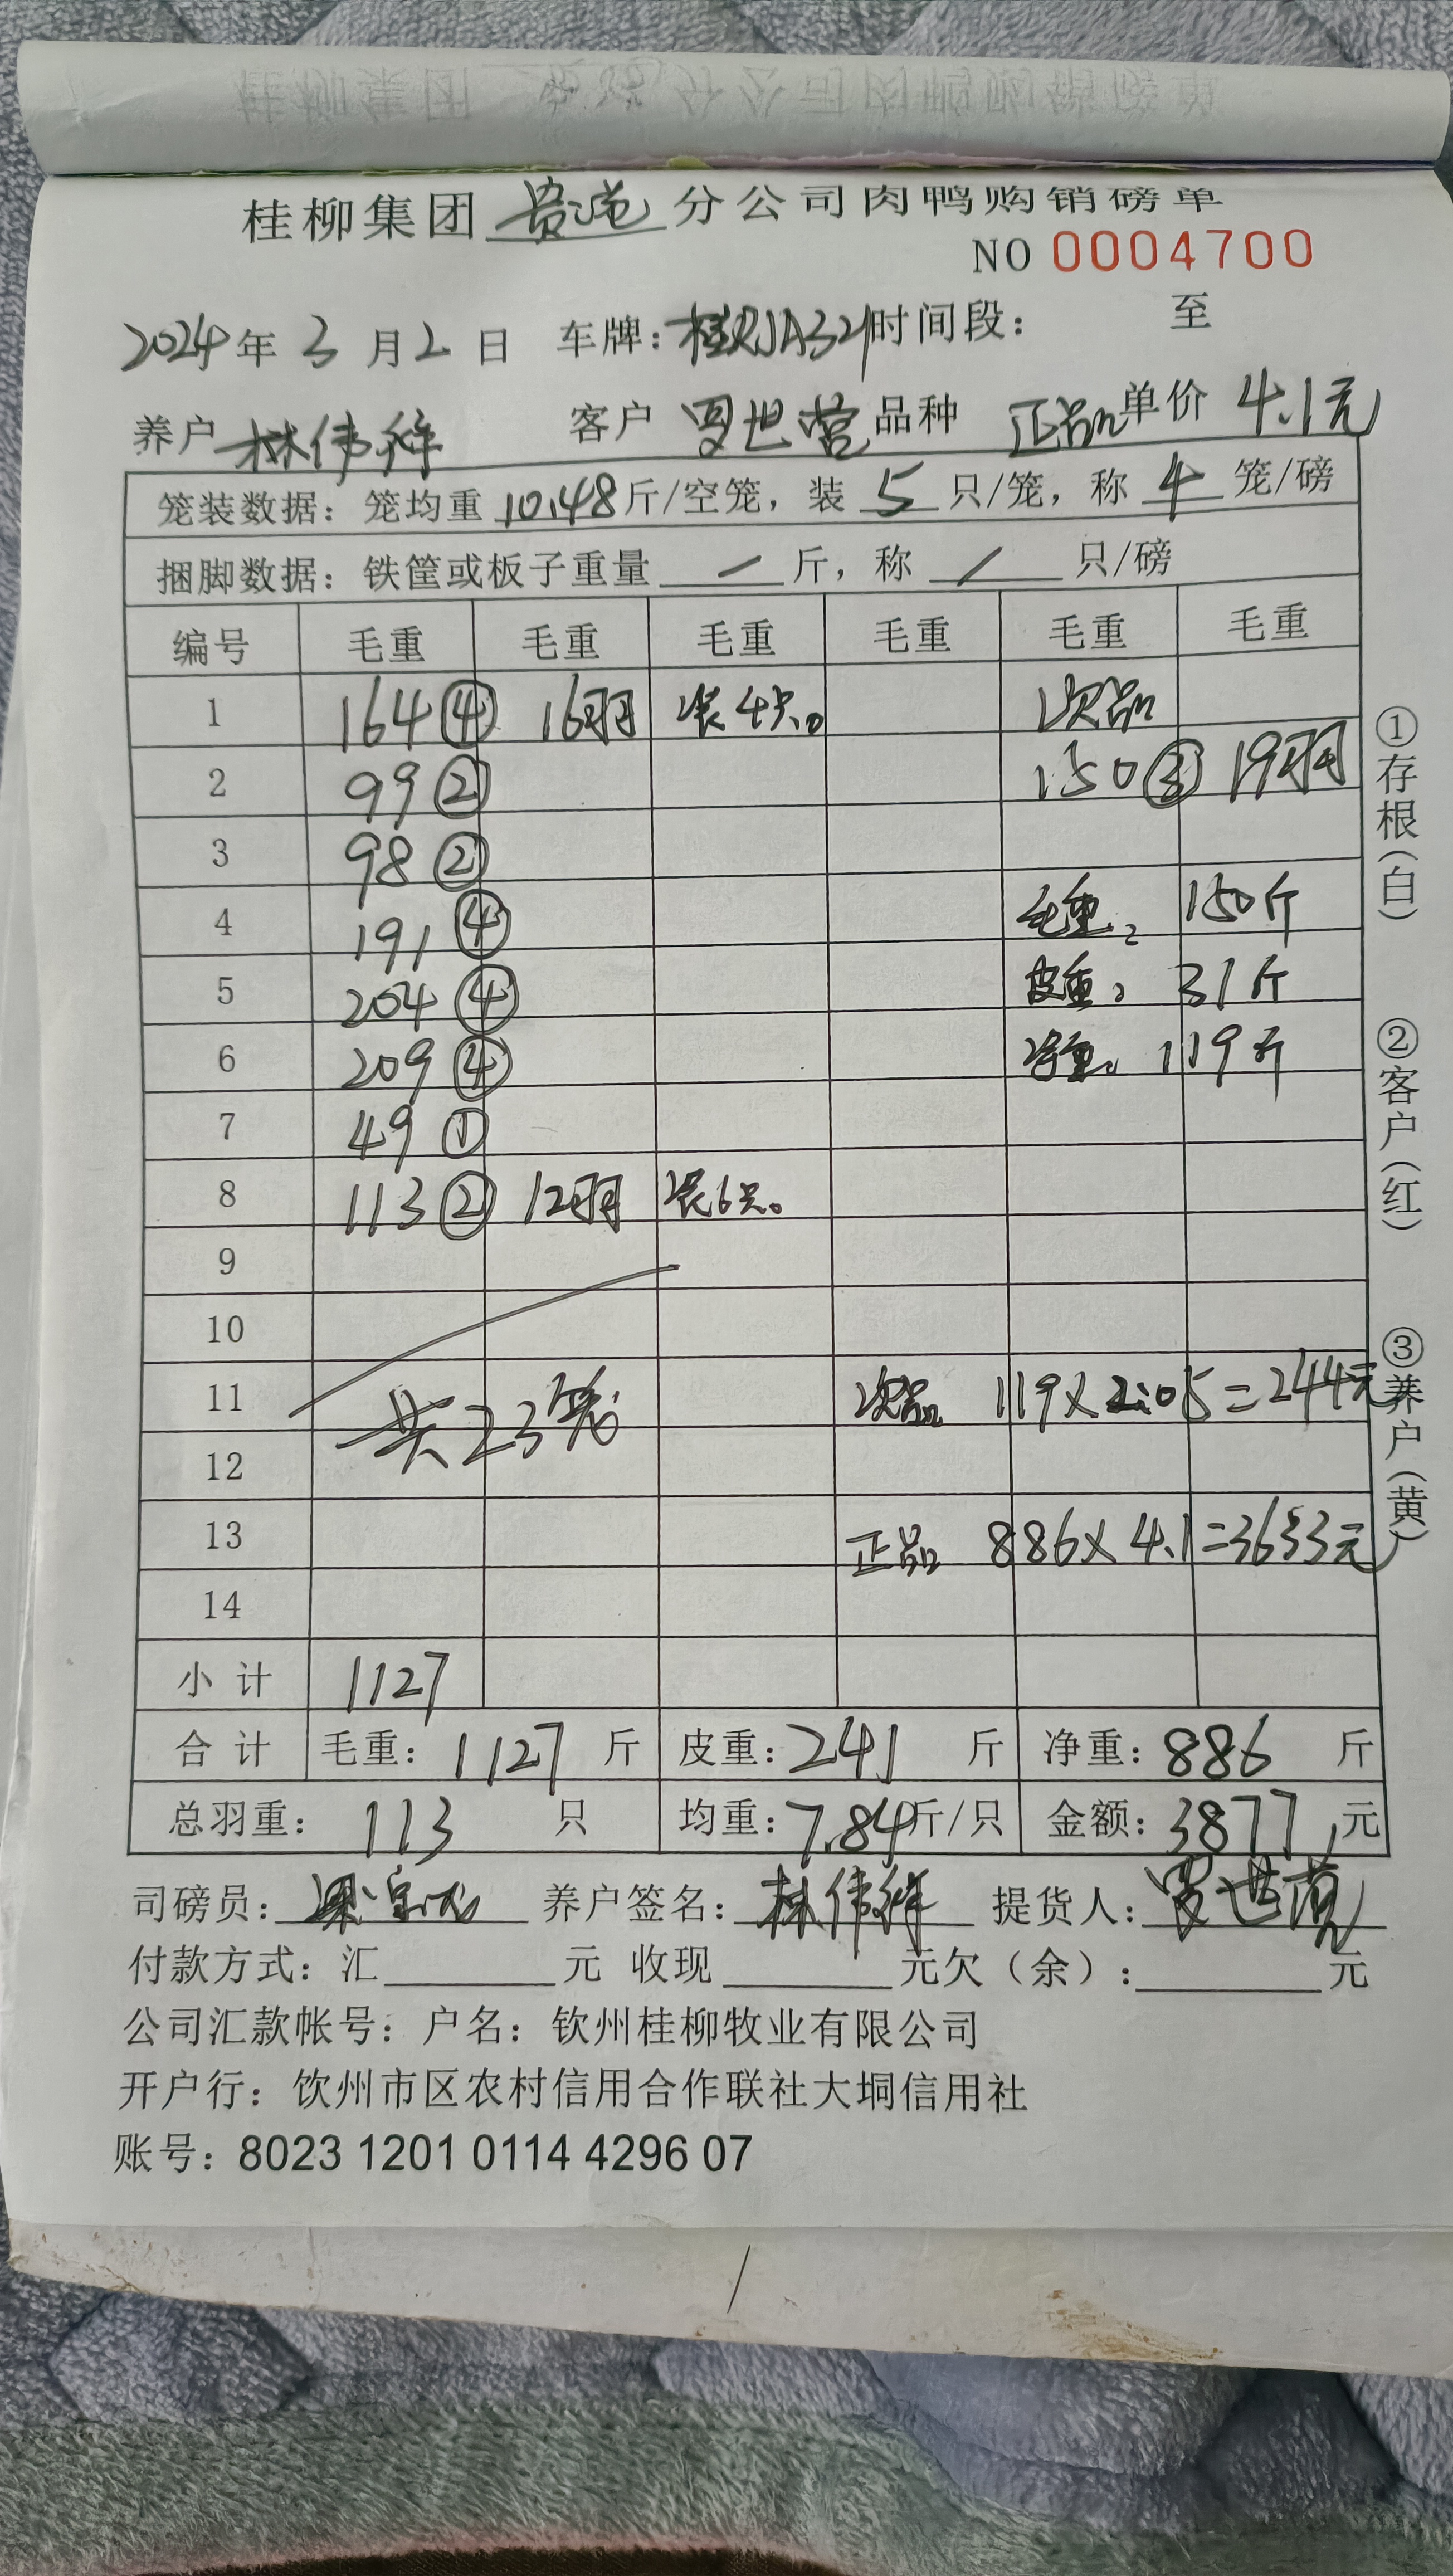 桂柳集团 贵港 分公司肉鸭购销磅单
NO 0004700
2024年 3 月 2 日 车牌: 时间段: 至
养户 林伟祥 客户 罗世营 品种 正品 单价 4.1元
笼装数据: 笼均重 10.48 斤/空笼, 装 5 只/笼, 称 4 笼/磅
捆脚数据: 铁筐或板子重量 / 斤, 称 / 只/磅
编号 毛重 毛重 毛重 毛重 毛重 毛重
1 164④ 16羽 装4只。 次品
2 99② 150③ 19羽
3 98②
4 191④ 毛重: 150斤
5 204④ 皮重: 31斤
6 209④ 净重: 119斤
7 49①
8 113② 12羽 装6只。
9
10
11 共23笼 次品 119×2.05=244元
12
13 正品 886×4.1=3633元
14
小计 1127
合计 毛重: 1127 斤 皮重: 241 斤 净重: 886 斤
总羽重: 113 只 均重: 7.84斤/只 金额: 3877 元
司磅员: 养户签名: 林伟祥 提货人: 罗世营
付款方式: 汇 元 收现 元欠(余): 元
公司汇款帐号: 户名: 钦州桂柳牧业有限公司
开户行: 饮州市区农村信用合作联社大垌信用社
账号: 8023 1201 0114 4296 07
①存根(白)
②客户(红)
③养户(黄)